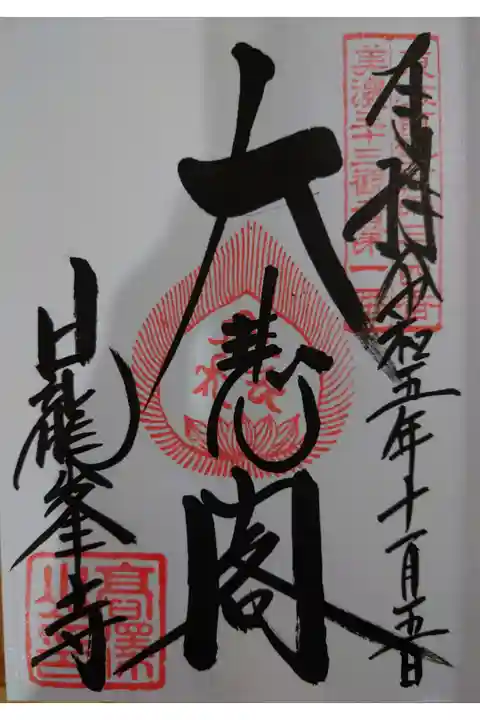 奉拝 令和五年十一月五日
美濃三十三観音第一番
大悲閣
日龍峯寺
高澤